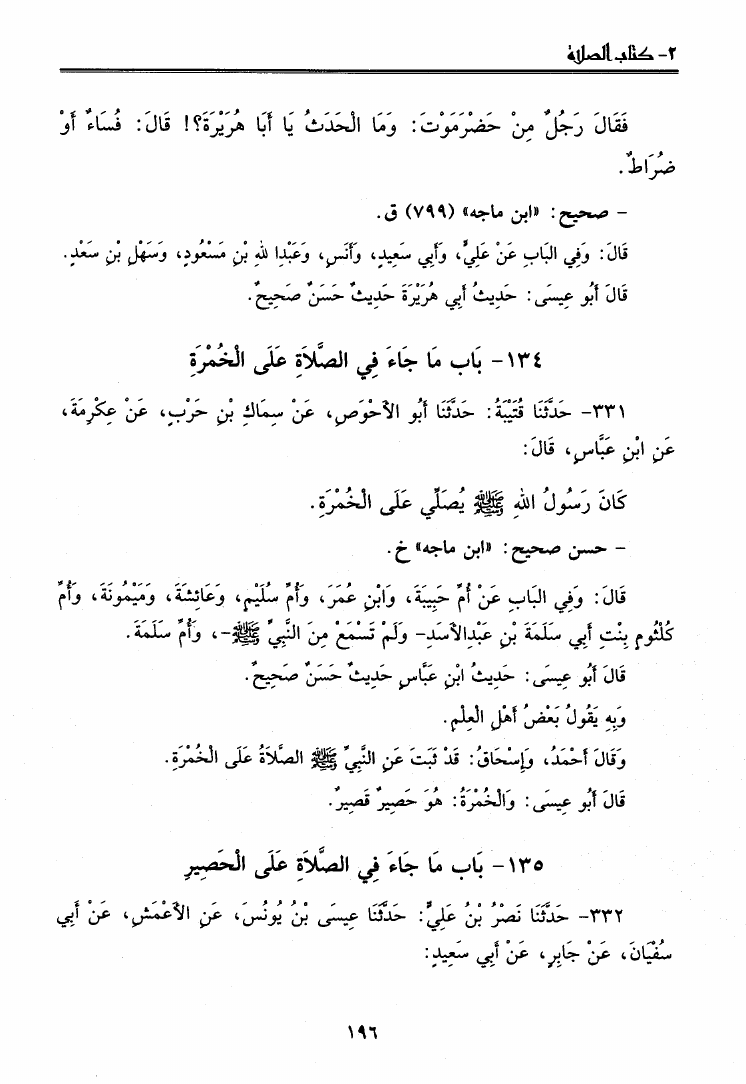 ٢- كتاب الصلاة
فَقَالَ رَجُلٌ مِنْ حَضْرَمَوْتَ: وَمَا الْحَدَثُ يَا أَبَا هُرَيْرَةَ؟! قَالَ: فُسَاءٌ أَوْ
ضُرَاطٌ.
- صحيح: «ابن ماجه» (٧٩٩) ق.
قَالَ: وَفِي البَابِ عَنْ عَلِيٍّ، وَأَبِي سَعِيدٍ، وَأَنَسٍ، وَعَبْدِا للهِ بْنِ مَسْعُودٍ، وَسَهْلِ بْنِ سَعْدٍ.
قَالَ أَبُو عِيسَى: حَدِيثُ أَبِي هُرَيْرَةَ حَدِيثٌ حَسَنٌ صَحِيحٌ.
١٣٤- بَاب مَا جَاءَ فِي الصَّلاَةِ عَلَى الْخُمْرَةِ
٣٣١- حَدَّثَنَا قُتَيْبَةُ: حَدَّثَنَا أَبُو الأَحْوَصِ، عَنْ سِمَاكِ بْنِ حَرْبٍ، عَنْ عِكْرِمَةَ،
عَنِ ابْنِ عَبَّاسٍ، قَالَ:
كَانَ رَسُولُ اللهِ ﷺ يُصَلِّي عَلَى الْخُمْرَةِ.
- حسن صحيح: «ابن ماجه» خ.
قَالَ: وَفِي البَابِ عَنْ أُمِّ حَبِيبَةَ، وَابْنِ عُمَرَ، وَأُمِّ سُلَيْمٍ، وَعَائِشَةَ، وَمَيْمُونَةَ، وَأُمِّ
كُلْثُومٍ بِنْتِ أَبِي سَلَمَةَ بْنِ عَبْدِالأَسَدِ- وَلَمْ تَسْمَعْ مِنَ النَّبِيِّ ﷺ-، وَأُمِّ سَلَمَةَ.
قَالَ أَبُو عِيسَى: حَدِيثُ ابْنِ عَبَّاسٍ حَدِيثٌ حَسَنٌ صَحِيحٌ.
وَبِهِ يَقُولُ بَعْضُ أَهْلِ العِلْمِ.
وَقَالَ أَحْمَدُ، وَإِسْحَاقُ: قَدْ ثَبَتَ عَنِ النَّبِيِّ ﷺ الصَّلاَةُ عَلَى الْخُمْرَةِ.
قَالَ أَبُو عِيسَى: وَالْخُمْرَةُ: هُوَ حَصِيرٌ قَصِيرٌ.
١٣٥- بَاب مَا جَاءَ فِي الصَّلاَةِ عَلَى الْحَصِيرِ
٣٣٢- حَدَّثَنَا نَصْرُ بْنُ عَلِيٍّ: حَدَّثَنَا عِيسَى بْنُ يُونُسَ، عَنِ الأَعْمَشِ، عَنْ أَبِي
سُفْيَانَ، عَنْ جَابِرٍ، عَنْ أَبِي سَعِيدٍ:
١٩٦